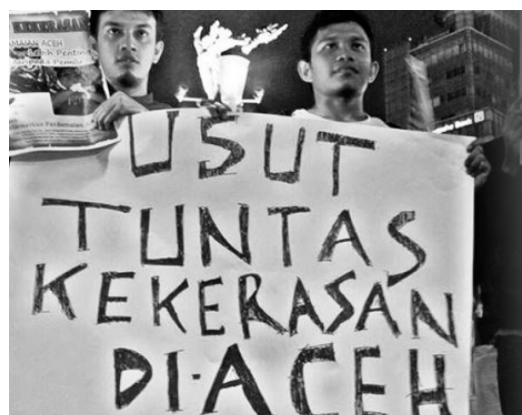 MAIAN ACEH
USUT
TUNTAS
KEKERASAN
DI-ACEH